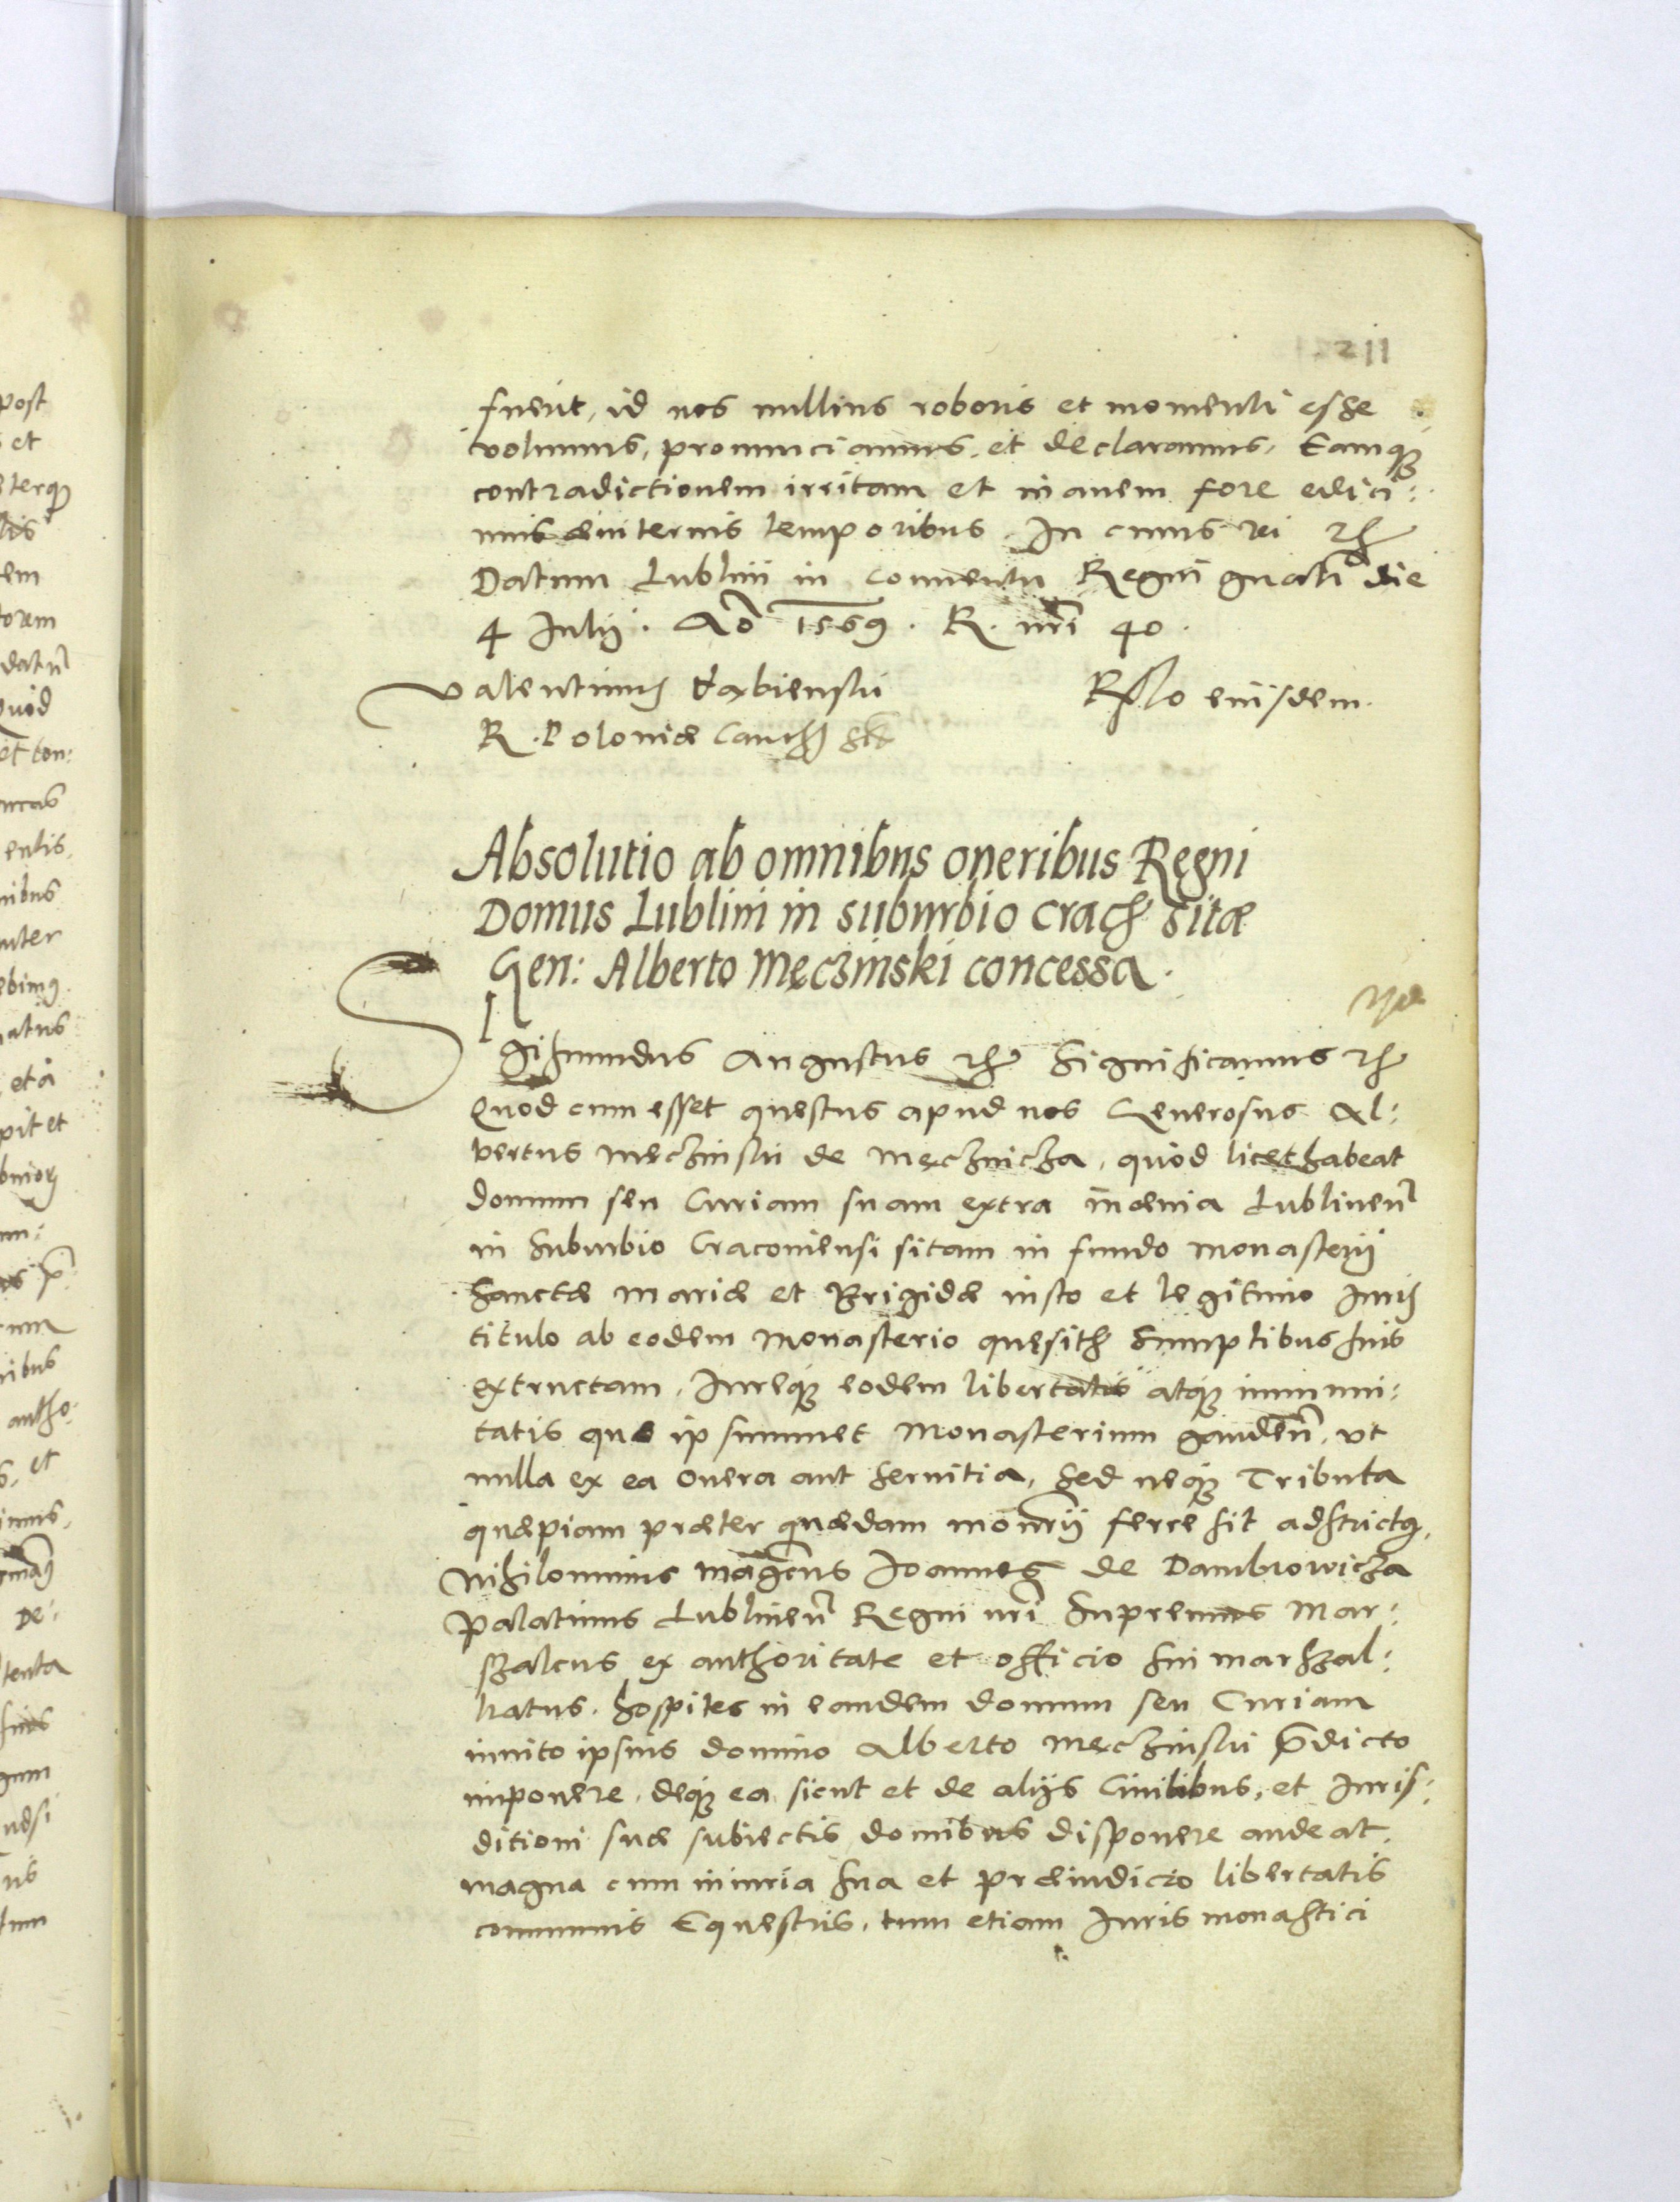 211
fuerit, id nos nullius roboris et momenti esse
volumus, pronunciamus, et declaramus, Eamq3
contradictionem irritam et inanem fore edici:
mus aeuiternis temporibus. In cuius rei etc
Datum Lublini in Conuentu Regni gnali die
4 Julij. Ao 1569. R. nri 40.
Valentinus Dąbienski
Rlo eiusdem.
R. Poloniæ Canc sst
Absolutio ab omnibus oneribus Regni
Domus Lublini in suburbio Crac sitæ
Gen: Alberto Męczinski concessa.
Sigismundus Augustus etc Significamus etc
Quod cum esset questus apud nos Generosus Al:
bertus Męczinski de Męcznicza, quod licet habeat
domum seu Curiam suam extra mænia Lublinen
in suburbio Cracouiensi sitam in fundo monasterij
Sanctæ Mariæ et Brigidæ iusto et legitimo Juris
titulo ab eodem monasterio quęsito Sumptibus suis
extructam, Jureq3 eodem libertatis atq3 immuni:
tatis quo ipsummet Monasterium gauden, ut
nulla ex ea onera aut seruitia, sed neq3 Tributa
quæpiam præter quædam monrij ferre sit adstrictus,
Nihilominus magcus Joannes de Dambrowicza
Palatinus Lublinen Regni nri Supremus Mar:
szalcus ex authoritate et officio sui marszal:
katus, hospites in eandem domum seu Curiam
inuito ipsius domino Alberto Męczinski pdicto
imponere, deq3 ea sicut et de alijs Ciuilibus, et Juris:
ditioni suæ subiectis domibus disponere audeat,
magna cum iniuria sua et præiudicio libertatis
communis Equestris, tum etiam Juris monastici